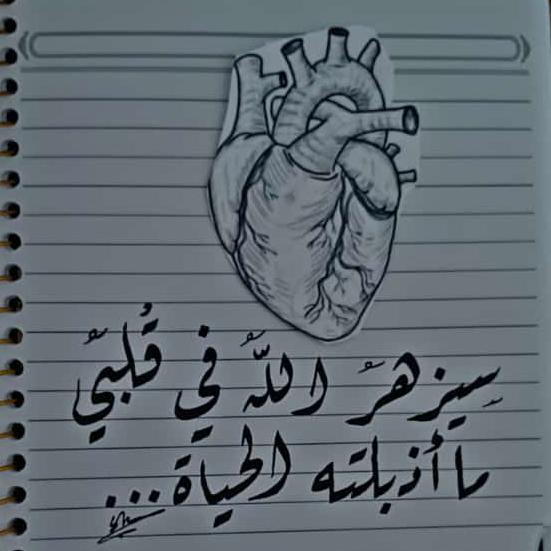 سيزهرُ اللّٰه في قُلبي
ما أذبلته الحياة...